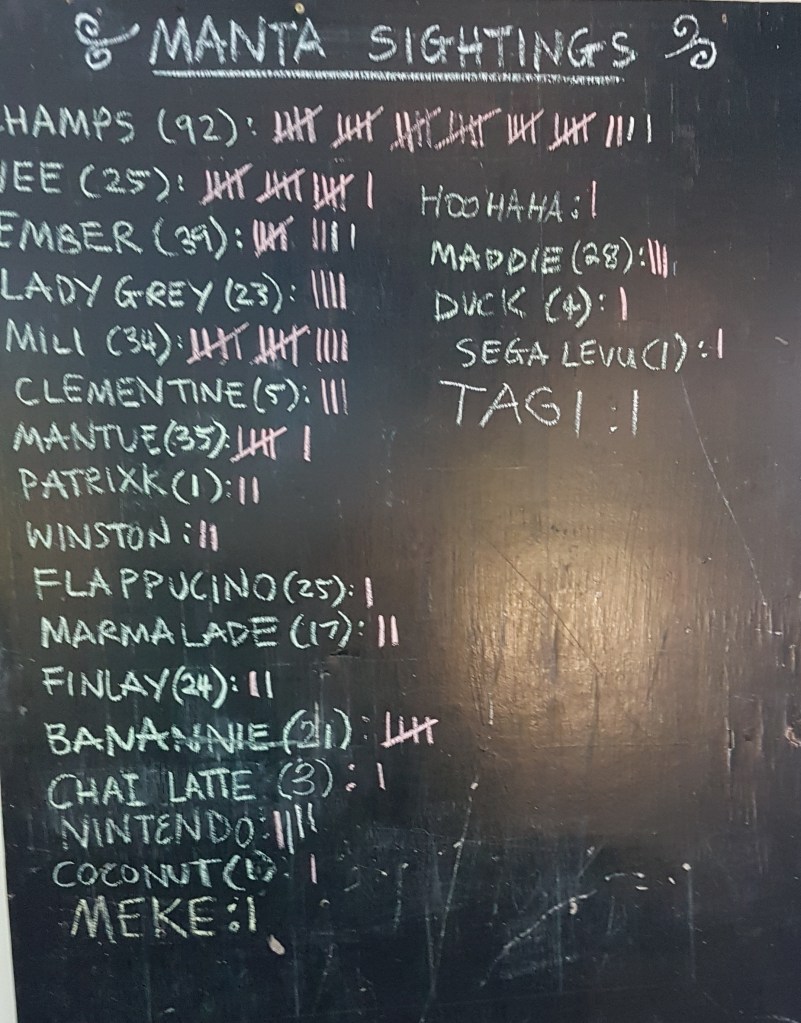 MANTA SIGHTINGS
HAMPS (92):
EE (25):
EMBER (39):
LADY GREY (23):
MILI (34):
CLEMENTINE (5):
MANTUE (35):
PATRIXK (1):
WINSTON :
FLAPPUCINO (25):
MARMALADE (17):
FINLAY (24):
BANANNIE (21):
CHAI LATTE (3):
NINTENDO:
COCONUT (1):
MEKE:
HOOHAHA:
MADDIE (28):
DUCK (4):
SEGA LEVU (1):
TAG1: